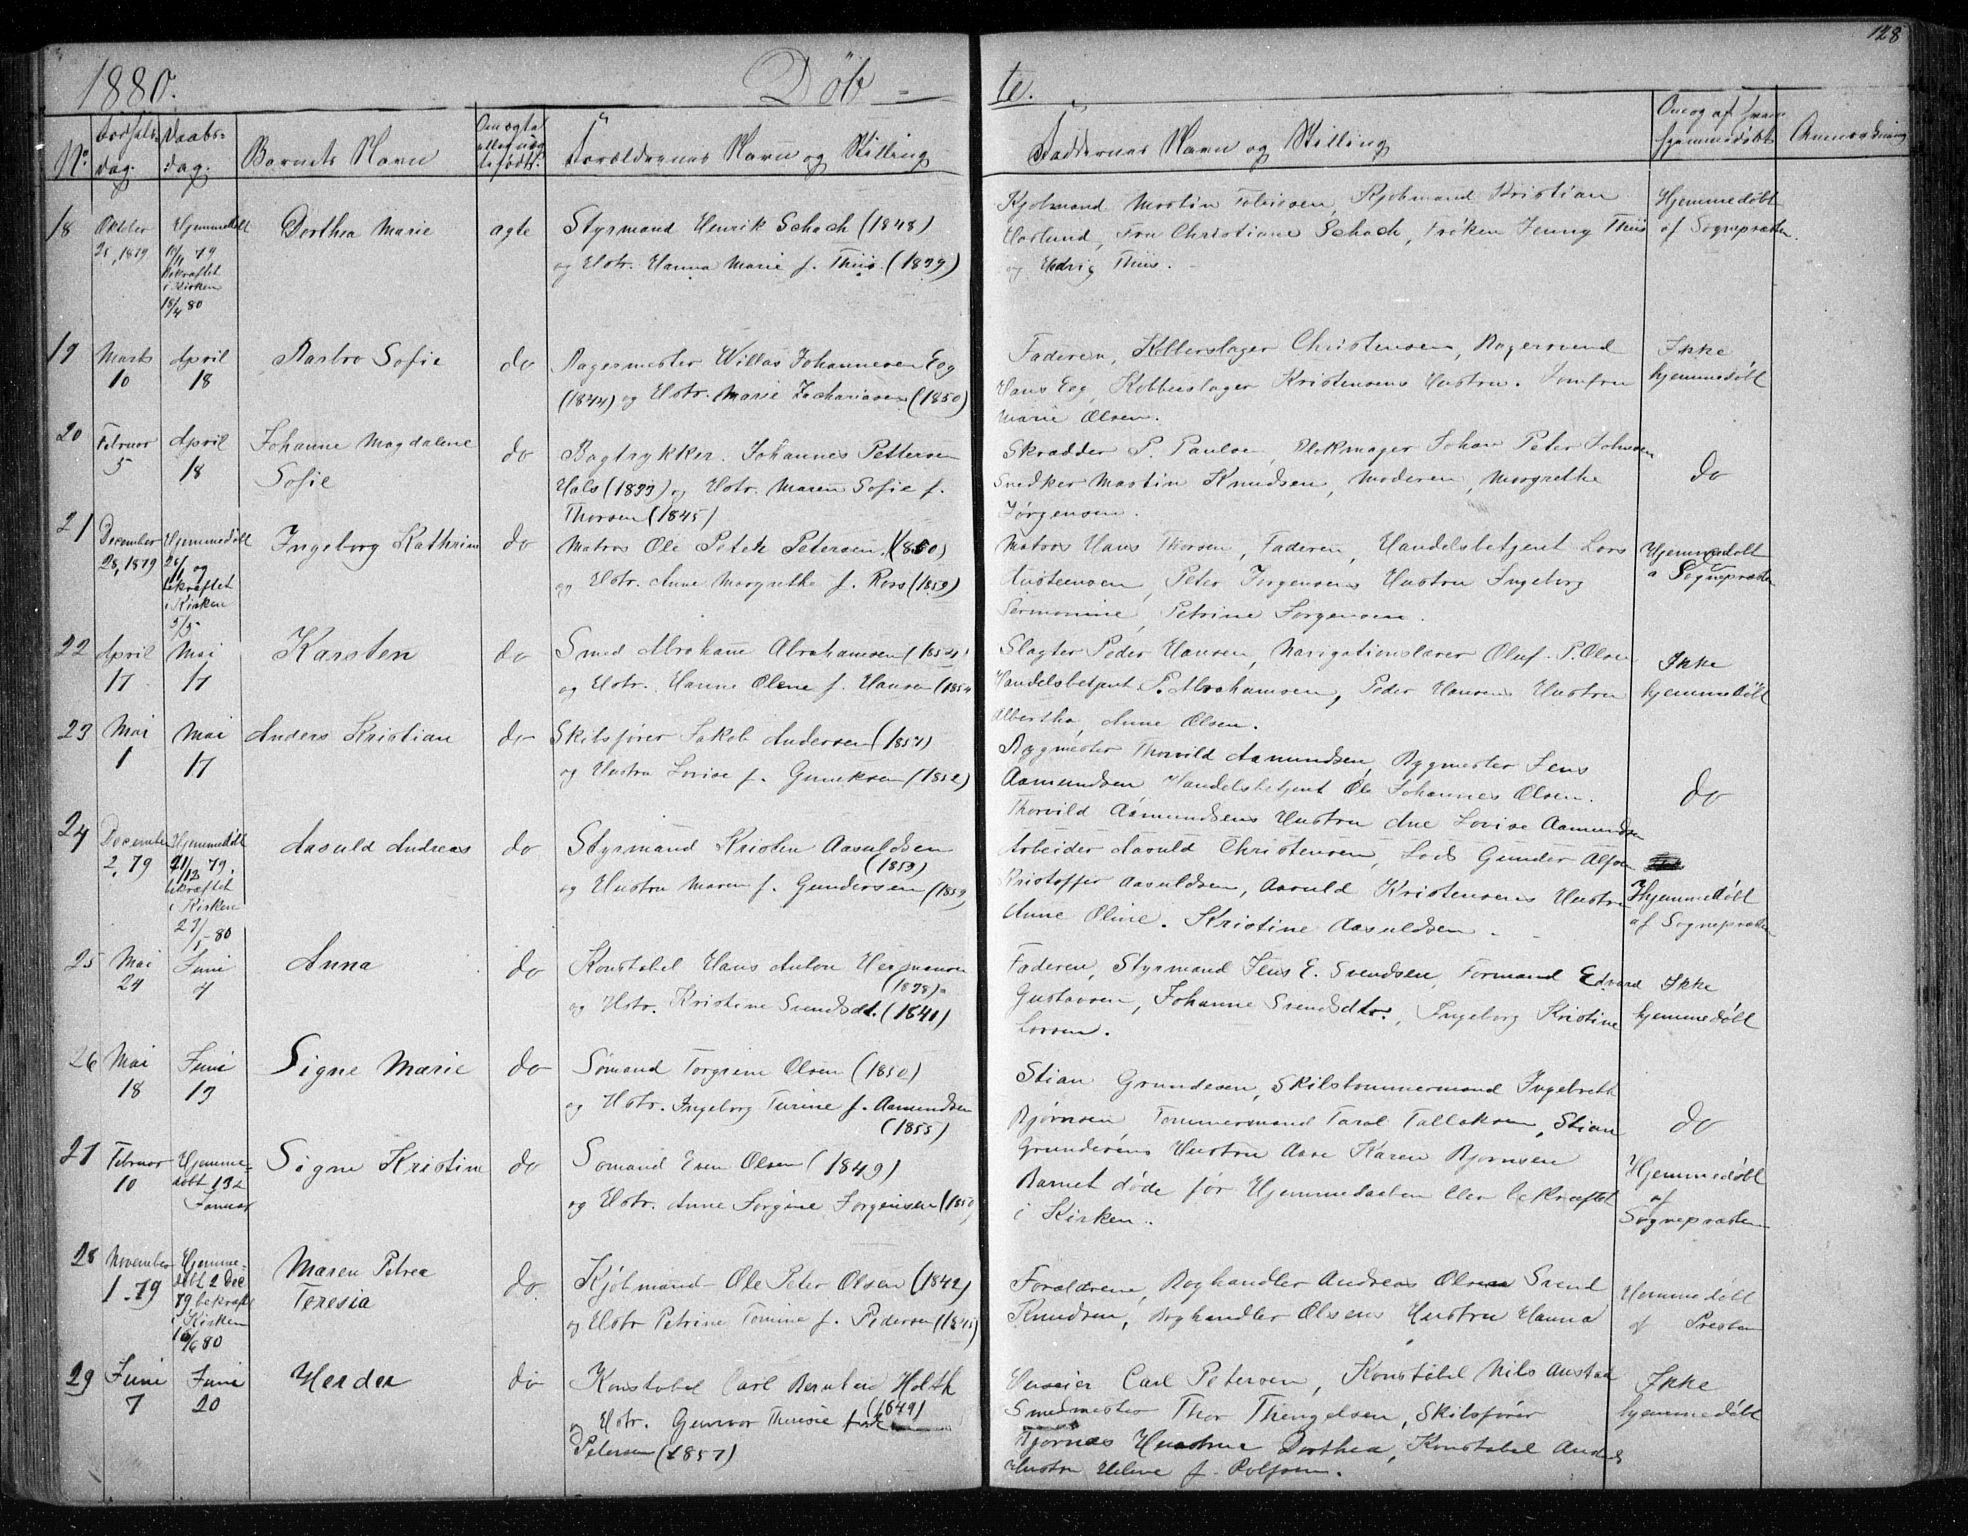 128
1880.
Döb - te.
No
Fødsels-dag.
Daabs-dag.
Barnets Navn
Om ægte eller uægte født.
Forældrenes Navn og Stilling
Faddernes Navn og Stilling
Om og af hvem hjemmedøbt
Anmærkning
18
Oktober 25, 1879
Hjemmedøbt 10/11 79 bekræftet i Kirken 18/4 80
Dorthea Marie
ægte
Styrmand Henrik Schach (1848)
og Hstr. Hanna Marie f. Thiis (1839)
Kjøbmand Martin Tobiesen, Kjøbmand Kristian
Hoslund, Fru Christiane Schach, Frøken Jenny Thiis
og Hedvig Thiis.
Hjemmedøbt
af Sognepræsten.
19
Marts 10
April 18
Barbro Sofie
do
Bagermester Willas Johannesen Eeg
(1844) og Hstr. Marie Zachariasen (1850)
Faderen, Kobberslager Christensen, Bagersvend
Hans Eeg, Kobberslager Kristensens Hustru. Jomfru
Marie Olsen.
Ikke
hjemmedøbt
20
Februar 5
April 18
Johanne Magdalene
Sofie
do
Bogtrykker. Johannes Pettersen
Hals (1833) og Hstr. Maren Sofie f.
Thorsen (1845)
Skrædder P. Paulsen, Blokmager Johan Peter Johnsen
Snedker Martin Knudsen, Moderen, Margrethe
Jørgensen.
do
21
December 28, 1879
Hjemmedøbt 26/1 og bekræftet i Kirken 5/5
Ingeborg Kathrine
do
Matros Ole Peter Petersen (1850)
og Hstr. Anne Margrethe f. Ross (1859)
Matros Hans Thorsen, Faderen, Handelsbetjent Lars
Austeensen, Peter Jørgensens Hustru Ingeborg
Petrine Jørgensen.
Hjemmedøbt
a Sognepræsten
22
April 17
Mai 17
Karsten
do
Smed Abraham Abrahamsen (1854)
og Hstr. Hanne Olene f. Hansen (1854
Slagter Peder Hansen, Navigationslærer Oluf. P. Olsen
Handelsbetjent P. Abrahamsen, Peder Hansens Hustru
Albertha, Anne Olsen.
Ikke
hjemmedøbt
23
Mai 1
Mai 17
Anders Kristian
do
Skibsfører Jakob Andersen (1854)
og Hustru Lovise f. Gunuksen (1852)
Bygmester Thorvild Aamundsen, Bygmester Jens
Aamundsen Handelsbetjent Ole Johannes Olsen.
Thorvild Aamundsens Hustru Ane Lovise Aamundsen
do
24
December 2, 79
Hjemmedøbt 21/12 79. bekræftet i Kirken 27/1-80
Aasuld Andreas
do
Styrmand Kristen Aasuldsen
(1853)
og Hustru Maren f. Gundersen (1859)
Arbeider Aasuld Christensen, Lods Gunder Alfsen
Kristoffer Aasuldsen, Aasuld Kristensens Hustru
Anne Oline. Kristine Aasuldsen.
Hjemmedøbt
af Sognepræsten
25
Mai 24
Juni 4
Anna
do
Konstabel Hans Anton Hermansen
(1838)
og Hstr. Kristine Svendsdt. (1841)
Faderen, Styrmand Jens E. Svendsen, Formand Edvard
Gustavsen, Johanne Svendsdtr., Ingeborg Kristine
Larsen.
Ikke
hjemmedøbt
26
Mai 18
Juni 13
Signe Marie
do
Sømand Torgrim Olsen (1850)
og Hstr. Ingeborg Turine f. Aamundsen
(1855)
Stian Grundesen, Skibstømmermand Ingebreth
Bjørnsen Tømmermand Tarol Tallaksen, Stian
Grundesens Hustru Aase Karen Bjørnsen
do
27
Februar 10
Hjemmedøbt 13de Januar
Signe Kristine
do
Sømand Even Olsen (1849)
og Hstr. Anne Jørgine Jørgensen (1850)
Barnet døde før Hjemmedaaben blev bekræftet
i Kirken.
Hjemmedøbt
af
Sognepræsten
28
November 1.79
Hjemmedøbt 2 Dec 79 bekræftet i Kirken 16/6 80
Maren Petrea
Teresia
do.
Kjøbmand Ole Peter Olsen (1842)
og Hstr Petrine Tomine f. Pedersen (1845)
Forældrene, Boghandler Andreas Olsen Svend
Knudsen, Boghandler Olsens Hustru Hanna
Hjemmedøbt
af Presten
29
Juni 7
Juni 20
Herder
do
Konstabel Carl Berntsen Holth
(1849)
og Hstr. Gunvor Theresie
Petersen (1857)
Carl Petersen, Konstabel Nils Austad
Smedmester Thor Thengelsen, Skibsfører
Bjørnes Hustru Dorthea, Konstabel
Hustru Helene f. Rolfsen.
Ikke
hjemmedøbt